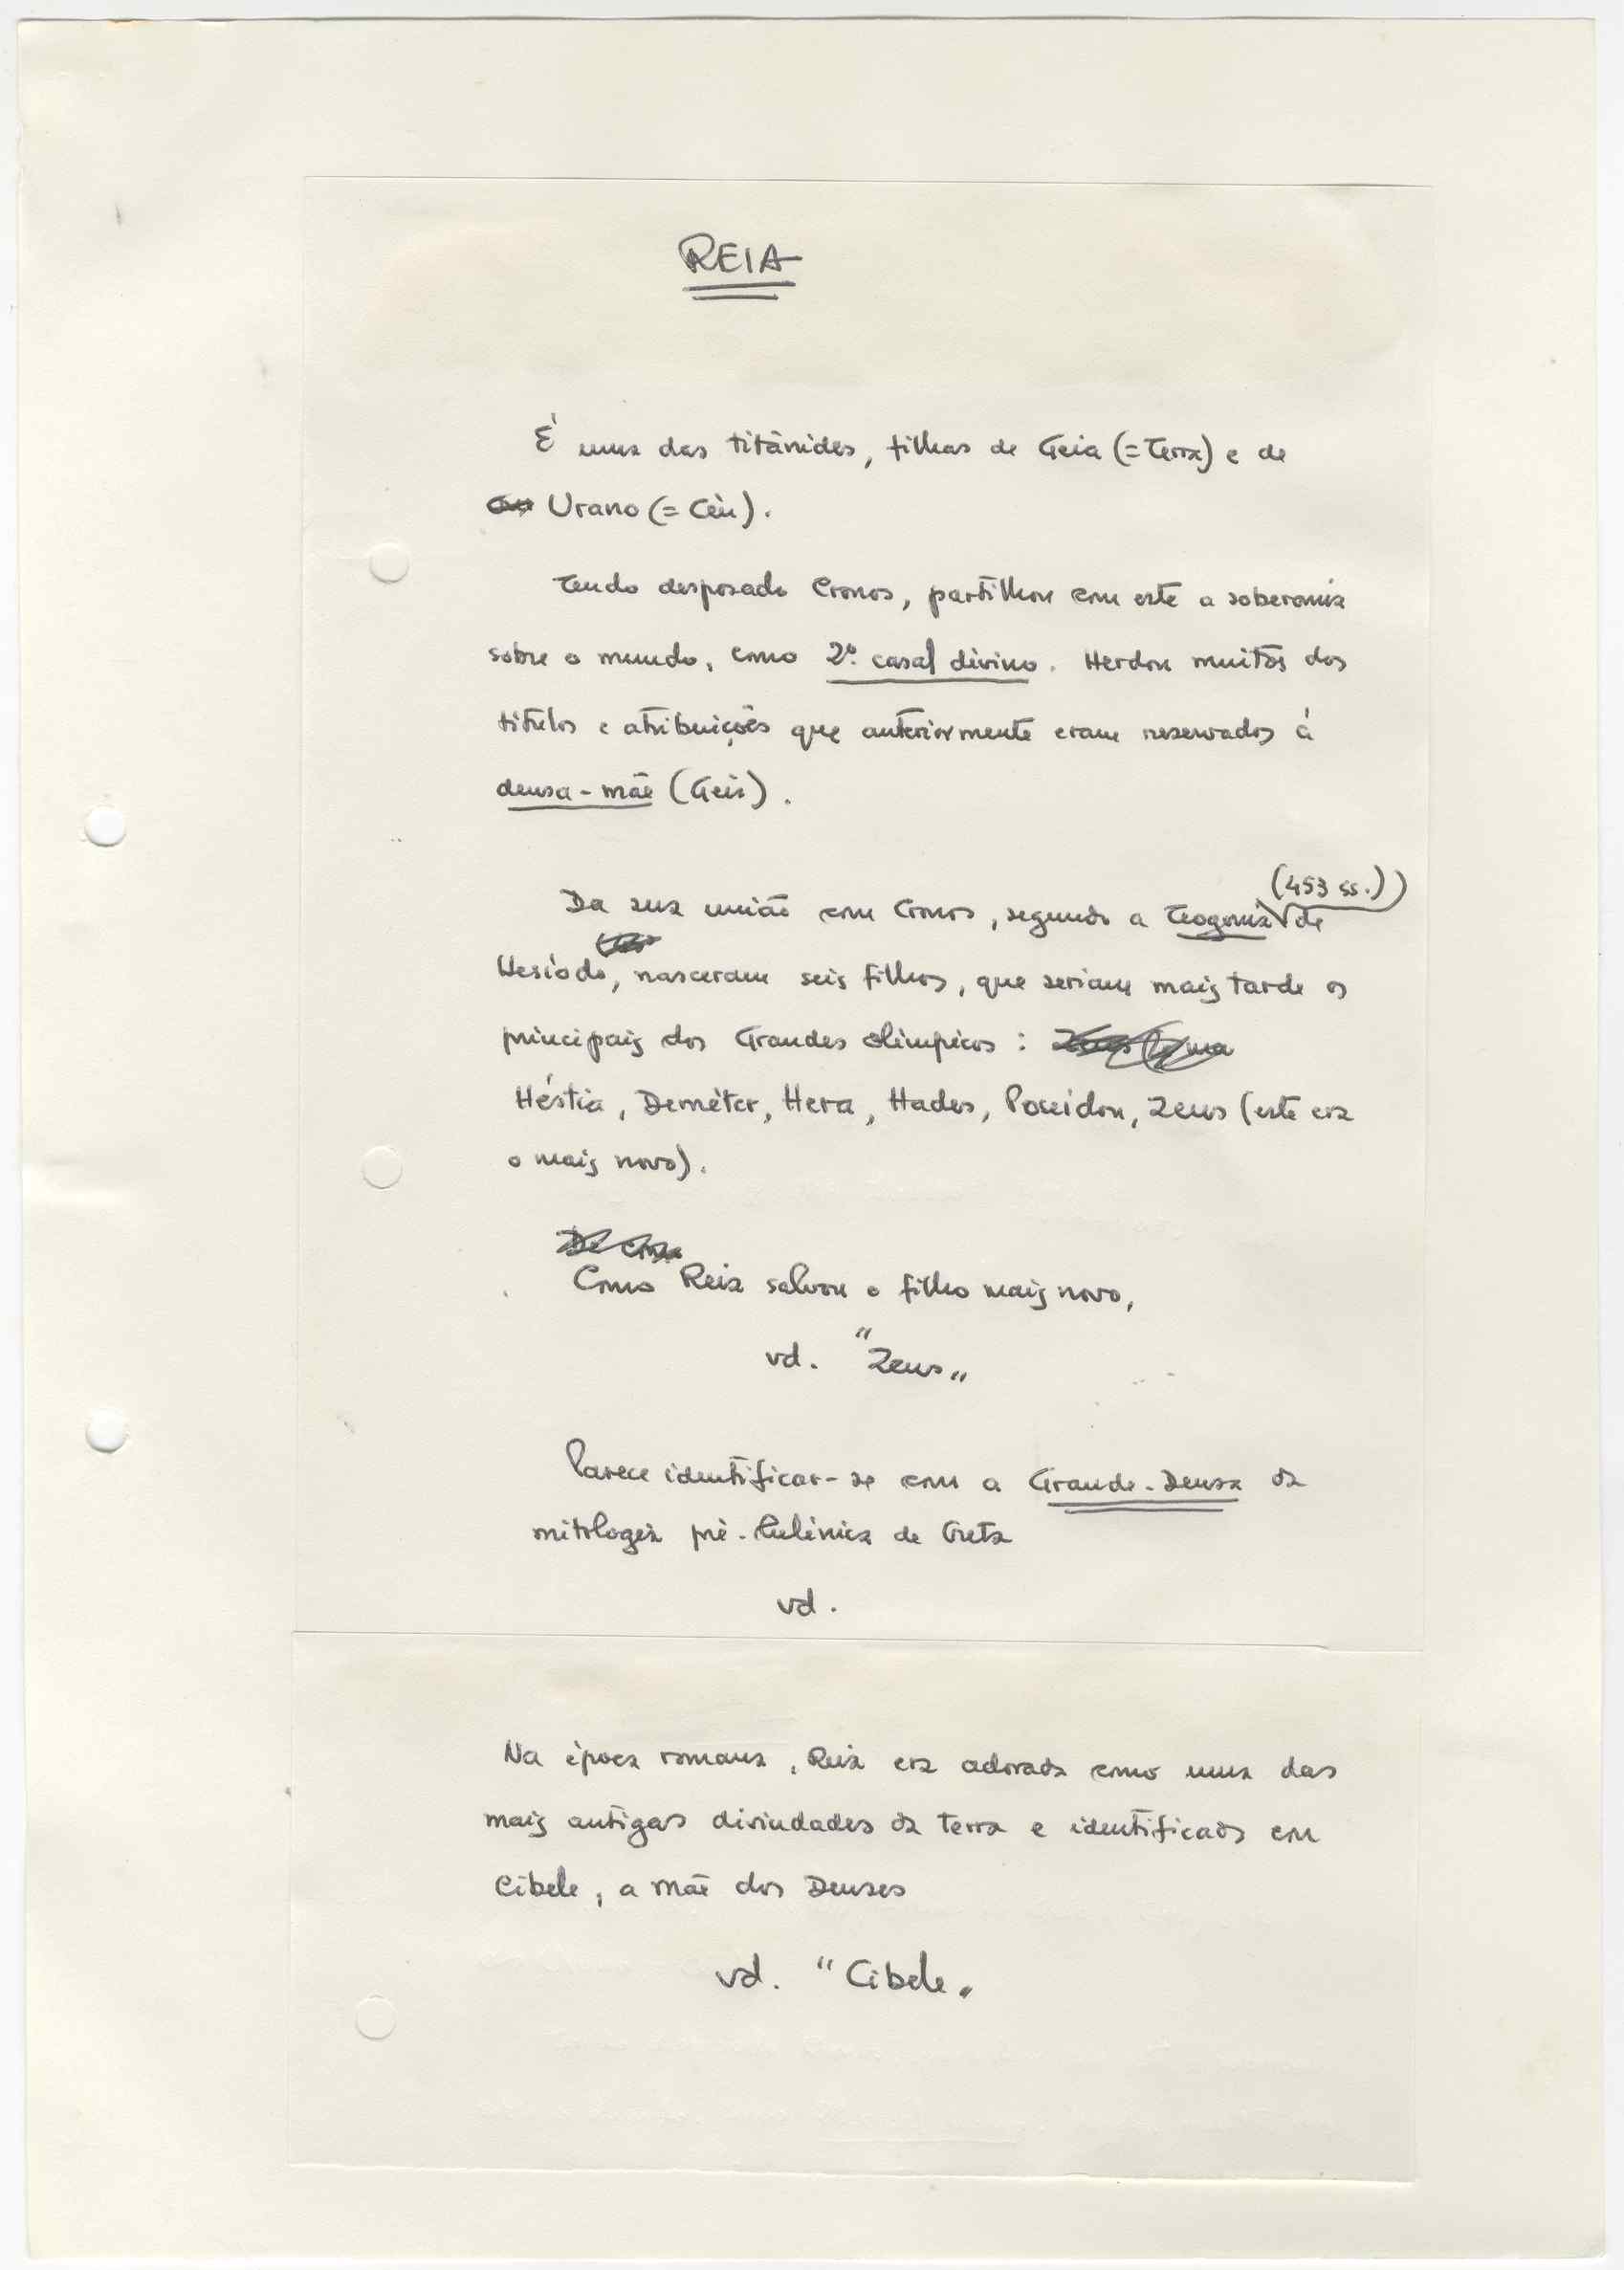 REIA
É uma das titânides, filhas de Geia (= Terra) e de
Urano (= Céu).
Tendo desposado Cronos, partilhou com este a soberania
sobre o mundo, como 2º casal divino. Herdou muitos dos
títulos e atribuições que anteriormente eram reservados à
deusa-mãe (Geia).
(453 ss.)
Da sua união com Cronos, segundo a Teogonia de
Hesíodo, nasceram seis filhos, que seriam mais tarde os
principais dos Grandes Olímpicos :
Héstia, Deméter, Hera, Hades, Poseidon, Zeus (este era
o mais novo).
Como Reia salvou o filho mais novo,
vd. "Zeus"
Parece identificar-se com a Grande-Deusa da
mitologia pré-helénica de Creta
vd.
Na época romana, Reia era adorada como uma das
mais antigas divindades da terra e identificada com
Cibele, a mãe dos Deuses
vd. "Cibele"